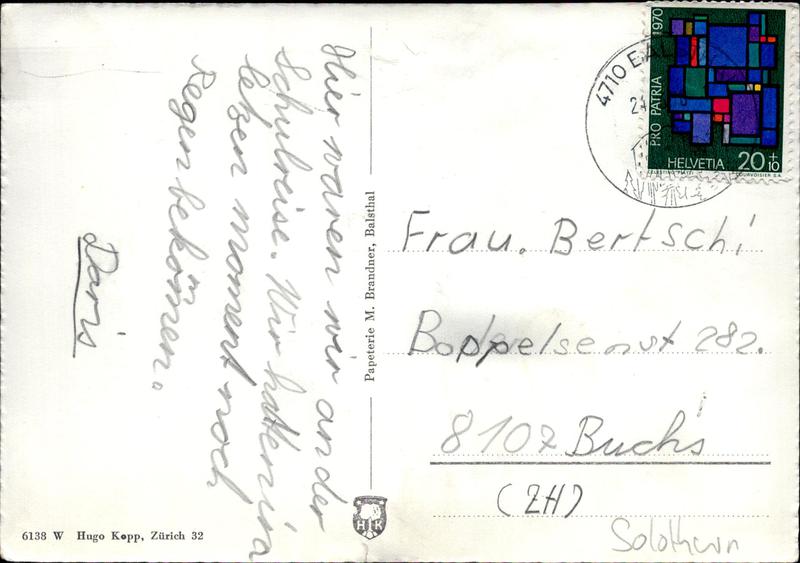 Hier waren wir an der
Schulreise. Wir haten im
letzen moment noch
Regen bekommen.
Doris
Papeterie M. Brandner, Balsthal
6138 W Hugo Kopp, Zürich 32
H K
4710
24
PRO PATRIA 1970
HELVETIA 20+10
COURVOISIER S.A.
Frau. Bertschi
Boppelsenstr 282.
8107 Buchs
(ZH)
Solothurn